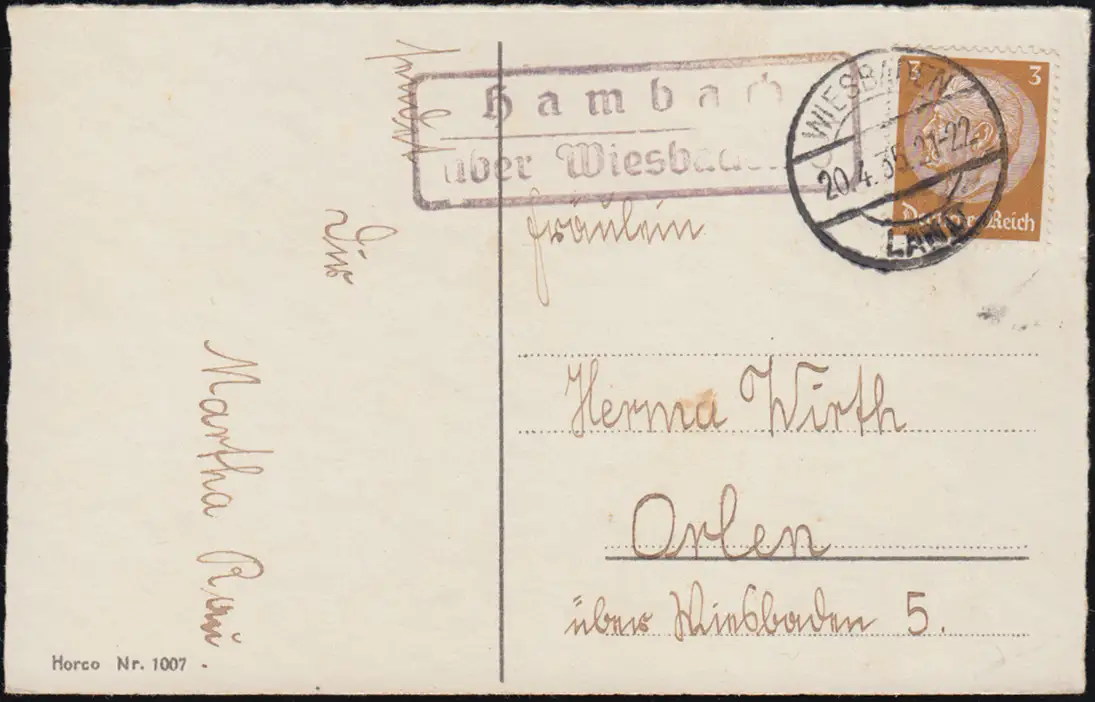 Dir
Martha Rau
Horco Nr. 1007
Hambach
über Wiesbaden
WIESBADEN
20.4. 21-22
LAND
3 3
Deutsches Reich
Fräulein
Herma Wirth
Orlen
über Wiesbaden 5.